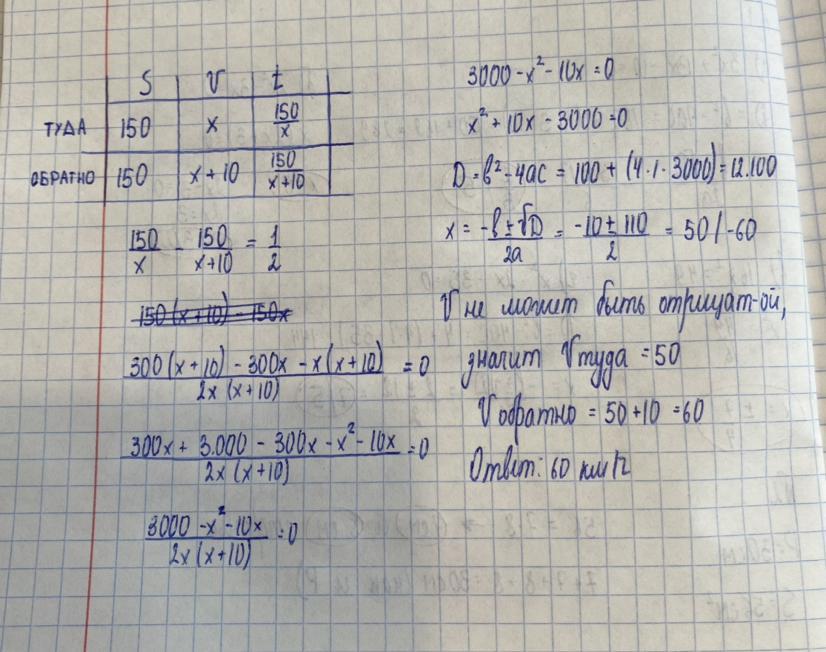 S V t
ТУДА 150 x 150/x
ОБРАТНО 150 x+10 150/x+10
150/x - 150/x+10 = 1/2
150(x+10) - 150x
300(x+10) - 300x - x(x+10) / 2x(x+10) = 0
300x + 3.000 - 300x - x² - 10x / 2x(x+10) = 0
3000 - x² - 10x / 2x(x+10) = 0
3000 - x² - 10x = 0
x² + 10x - 3000 = 0
D = b² - 4ac = 100 + (4·1·3000) = 12.100
x = -b ± √D / 2a = -10 ± 110 / 2 = 50 / -60
V не может быть отрицат-ой,
значит V туда = 50
V обратно = 50 + 10 = 60
Ответ: 60 км/ч